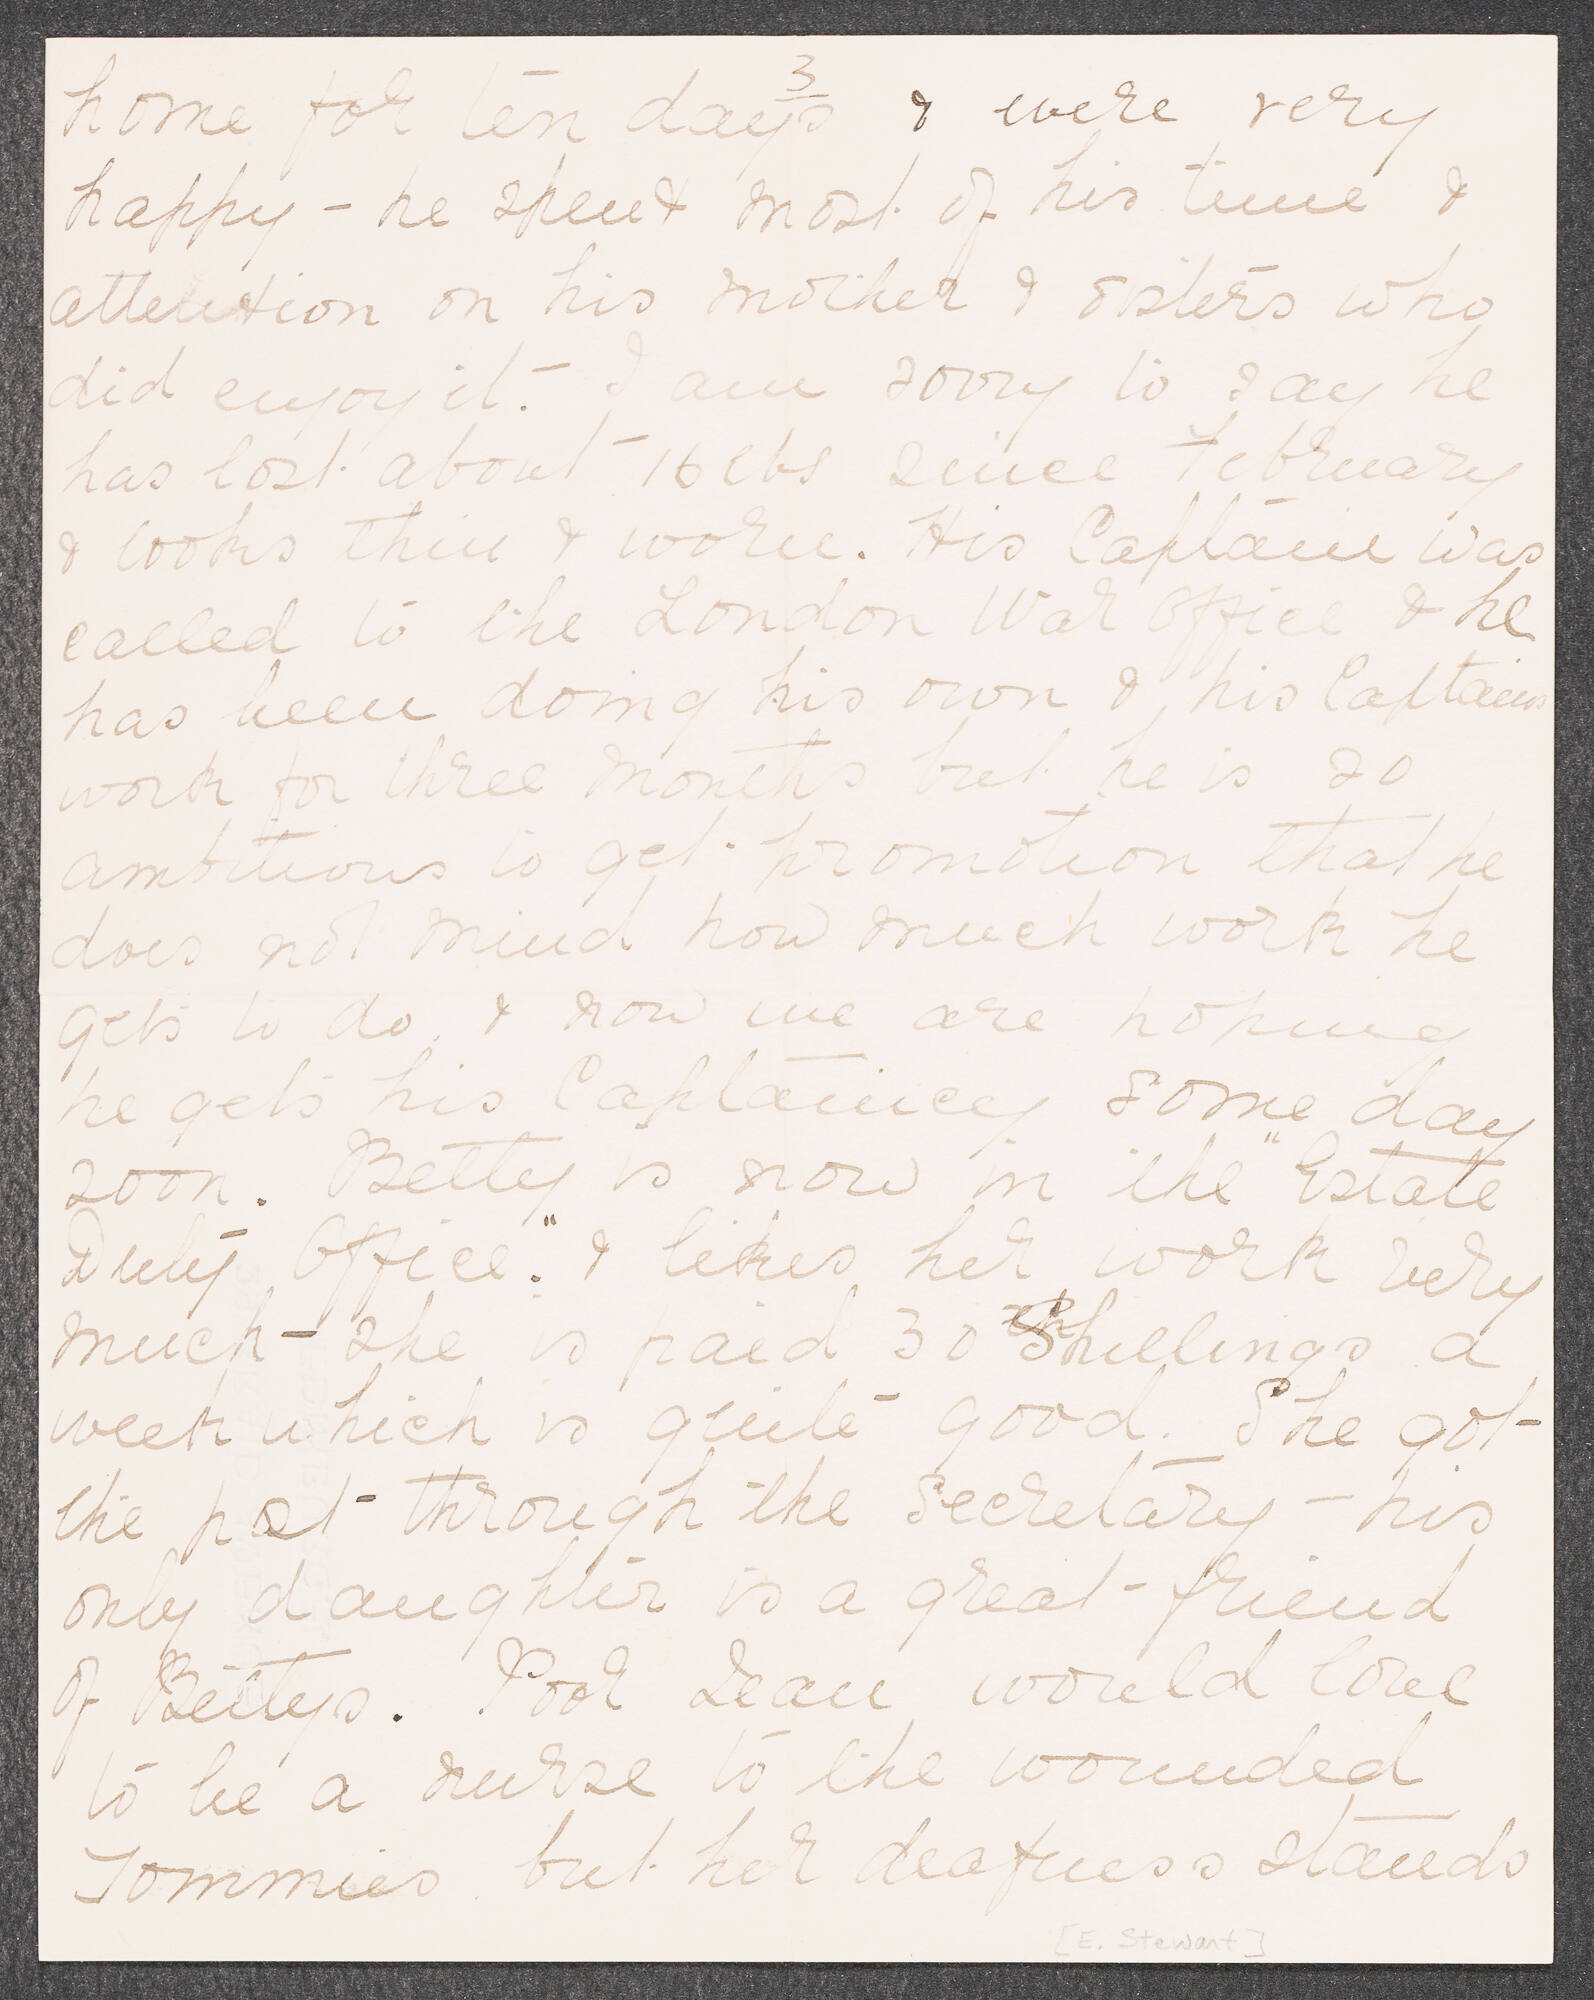 3
home for ten days & were very
happy – he spent most of his time &
attention on his mother & sisters who
did enjoy it – I am sorry to say he
has lost about 16 lbs since February
& looks thin & worn. His Captain was
called to the London War Office & he
has been doing his own & his Captains
work for three months but he is so
ambitious to get promotion that he
does not mind how much work he
gets to do, & now we are hoping
he gets his Captaincy some day
soon. Betty is now in the "Estate
Duty Office". & likes her work very
much – she is paid 30 Shillings a
week which is quite good. She got
the post through the Secretary – his
only daughter is a great friend
of Bettys. Poor Jean would love
to be a nurse to the wounded
Tommies but her deafness stands
[E. Stewart]